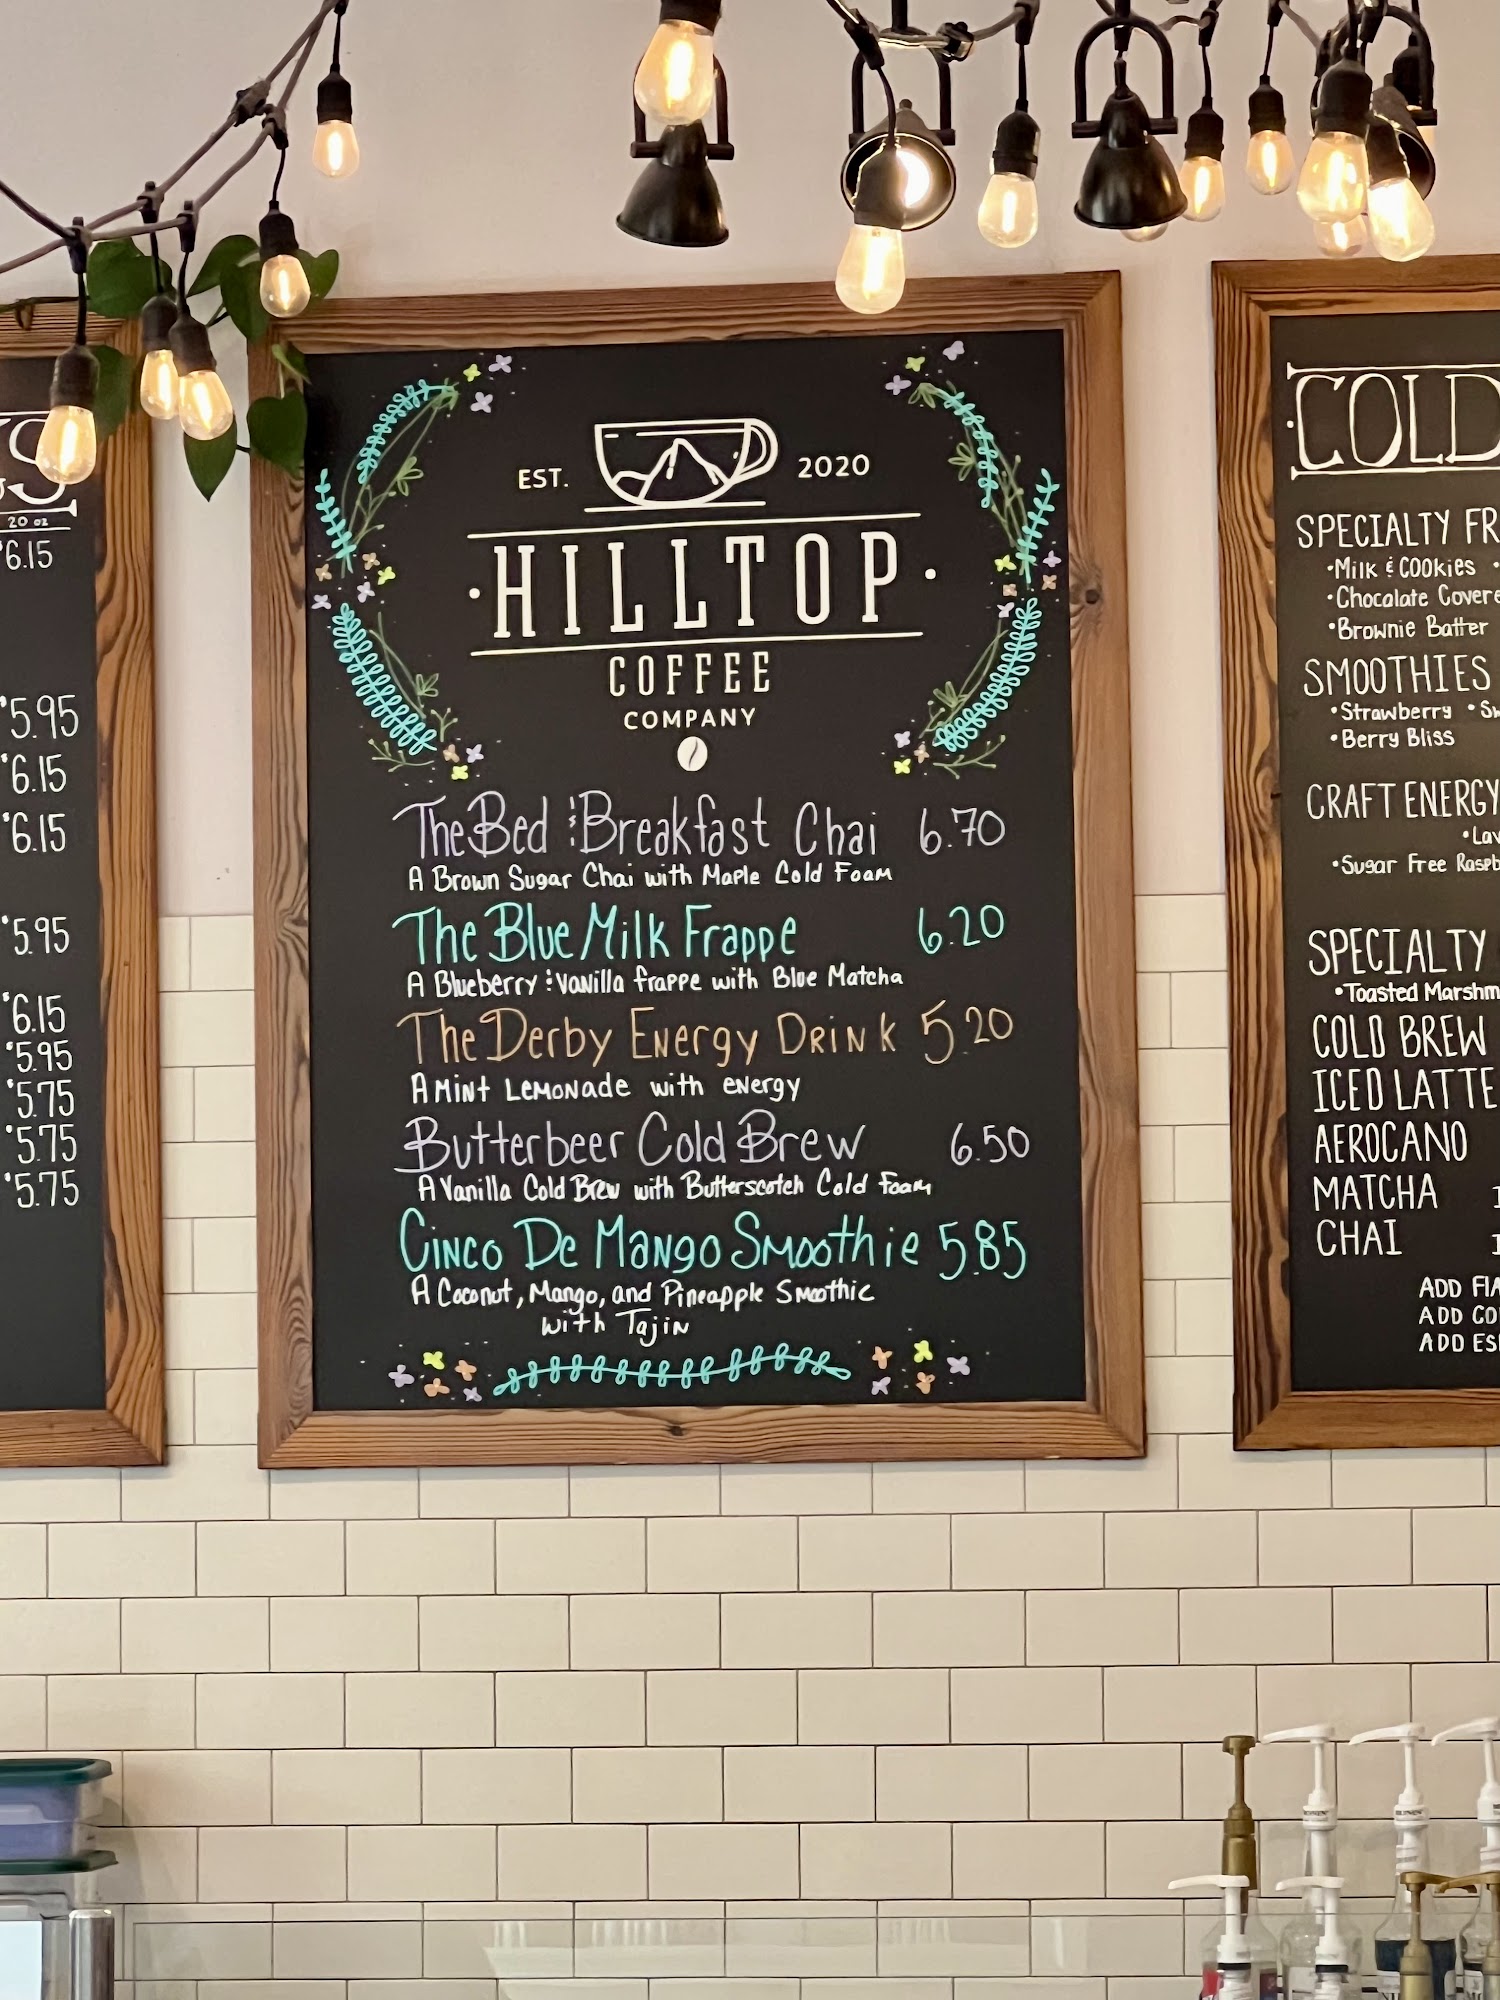 20 oz
$6.15
$5.95
$6.15
$6.15
$5.95
$6.15
$5.95
$5.75
$5.75
$5.75
EST. 2020
·HILLTOP·
COFFEE
COMPANY
The Bed & Breakfast Chai 6.70
A Brown Sugar Chai with Maple Cold Foam
The Blue Milk Frappe 6.20
A Blueberry & Vanilla frappe with Blue Matcha
The Derby Energy Drink 5.20
A Mint Lemonade with energy
Butterbeer Cold Brew 6.50
A Vanilla Cold Brew with Butterscotch Cold Foam
Cinco De Mango Smoothie 5.85
A Coconut, Mango, and Pineapple Smoothie
with Tajin
COLD
SPECIALTY FR
•Milk & Cookies •
•Chocolate Covere
•Brownie Batter
SMOOTHIES
•Strawberry •
•Berry Bliss
CRAFT ENERGY
•Lav
•Sugar Free Raspb
SPECIALTY
•Toasted Marshm
COLD BREW
ICED LATTE
AEROCANO
MATCHA
CHAI
ADD FLA
ADD CO
ADD ES